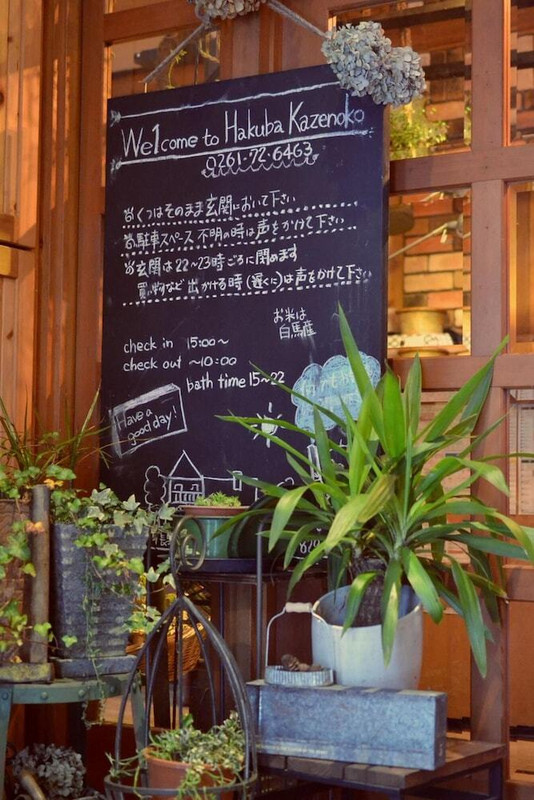 Welcome to Hakuba Kazenoko
0261-72-6463
※くつはそのまま玄関において下さい
※駐車スペース不明の時は声をかけて下さい
※玄関は22~23時ごろに閉めます
買い物など出かける時(遅くに)は声をかけて下さい
お米は
白馬産
check in 15:00~
check out ~10:00
bath time 15~22
Have a
good day!